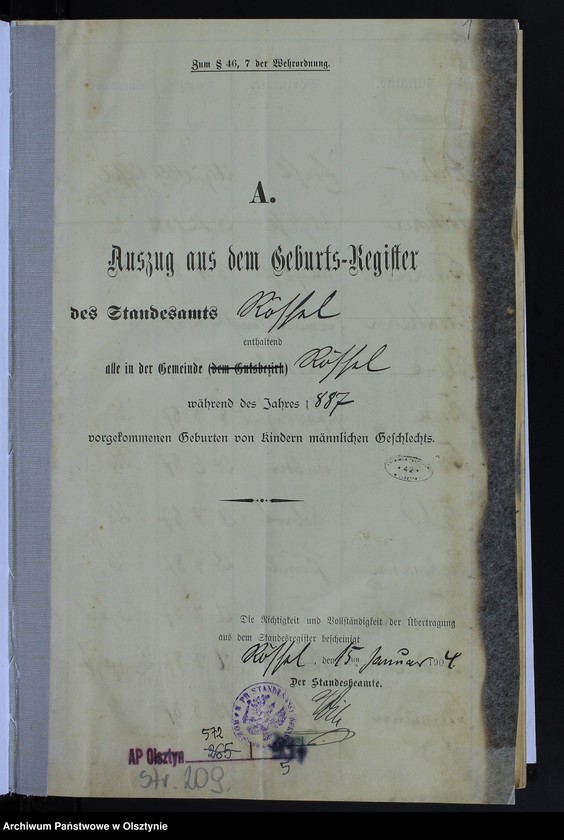 1
Zum § 46, 7 der Wehrordnung.
A.
Auszug aus dem Geburts-Register
des Standesamts Rössel
enthaltend
alle in der Gemeinde (dem Gutsbezirk) Rössel
während des Jahres 1887
vorgekommenen Geburten von Kindern männlichen Geschlechts.
42
Die Richtigkeit und Vollständigkeit der Übertragung
aus dem Standesregister bescheinigt
Rössel, den 15ten Januar 1904.
Der Standesbeamte.
572
AP Olsztyn 265
5
str. 209.
Archiwum Państwowe w Olsztynie